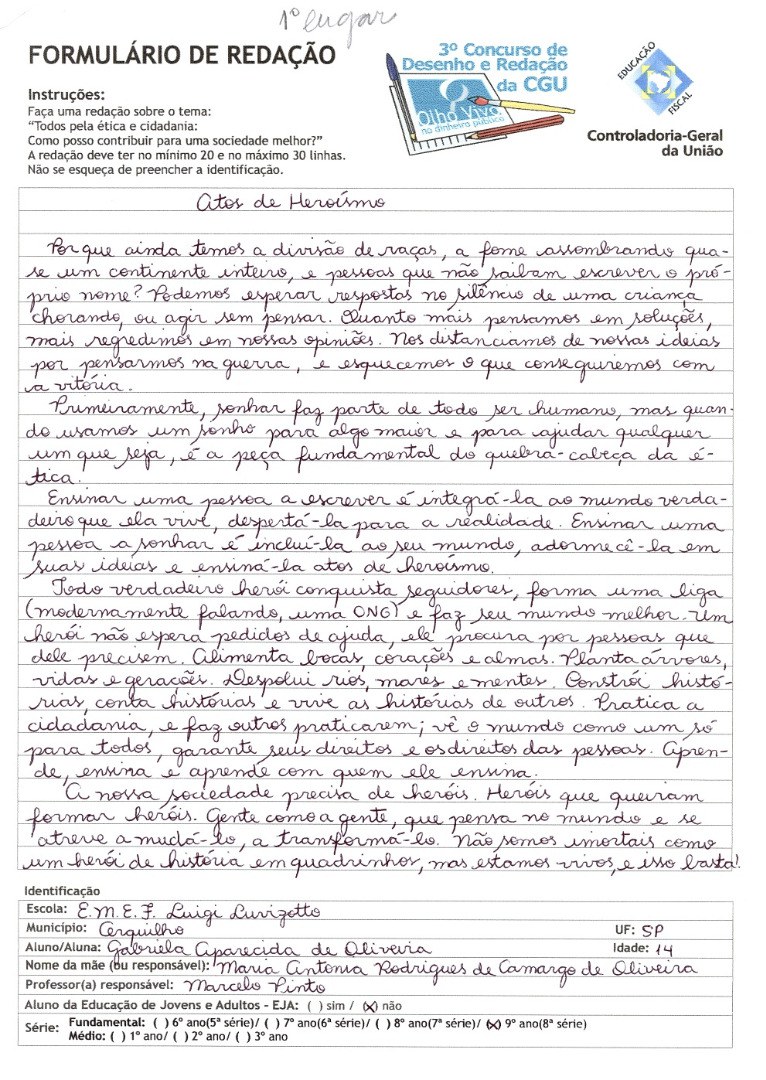 1º lugar
FORMULÁRIO DE REDAÇÃO
3º Concurso de
Desenho e Redação
da CGU
Olho Vivo
no dinheiro público
EDUCAÇÃO
FISCAL
Controladoria-Geral
da União
Instruções:
Faça uma redação sobre o tema:
"Todos pela ética e cidadania:
Como posso contribuir para uma sociedade melhor?"
A redação deve ter no mínimo 20 e no máximo 30 linhas.
Não se esqueça de preencher a identificação.
Atos de Heroísmo
Por que ainda temos a divisão de raças, a fome assombrando qua-
se um continente inteiro, e pessoas que não saibam escrever o pró-
prio nome? Podemos esperar respostas no silêncio de uma criança
chorando, ou agir sem pensar. Quanto mais pensamos em soluções,
mais regredimos em nossas opiniões. Nos distanciamos de nossas ideias
por pensarmos na guerra, e esquecemos o que conseguiremos com
a vitória.
Primeiramente, sonhar faz parte de todo ser humano, mas quan-
do usamos um sonho para algo maior e para ajudar qualquer
um que seja, é a peça fundamental do quebra-cabeça da é-
tica.
Ensinar uma pessoa a escrever é integrá-la ao mundo verda-
deiro que ela vive, despertá-la para a realidade. Ensinar uma
pessoa a sonhar é incluí-la ao seu mundo, adormecê-la em
suas ideias e ensiná-la atos de heroísmo.
Todo verdadeiro herói conquista seguidores, forma uma liga
(modernamente falando, uma ONG) e faz seu mundo melhor. Um
herói não espera pedidos de ajuda, ele procura por pessoas que
dele precisem. Alimenta bocas, corações e almas. Planta árvores,
vidas e gerações. Despolui rios, mares e mentes. Constrói histó-
rias, conta histórias e vive as histórias de outros. Pratica a
cidadania, e faz outros praticarem; vê o mundo como um só
para todos, garante seus direitos e os direitos das pessoas. Apren-
de, ensina e aprende com quem ele ensina.
A nossa sociedade precisa de heróis. Heróis que queiram
formar heróis. Gente como a gente, que pensa no mundo e se
atreve a mudá-lo, a transformá-lo. Não somos imortais como
um herói de história em quadrinhos, mas estamos vivos, e isso basta!
Identificação
Escola: E.M.E.F. Luigi Lurizotto
Município: Cerquilho UF: SP
Aluno/Aluna: Gabriela Aparecida de Oliveira Idade: 14
Nome da mãe (ou responsável): Maria Antonia Rodrigues de Camargo de Oliveira
Professor(a) responsável: Marcelo Pinto
Aluno da Educação de Jovens e Adultos - EJA: ( ) sim / (x) não
Série: Fundamental: ( ) 6º ano(5ª série)/ ( ) 7º ano(6ª série)/ ( ) 8º ano(7ª série)/ (x) 9º ano(8ª série)
Médio: ( ) 1º ano/ ( ) 2º ano/ ( ) 3º ano